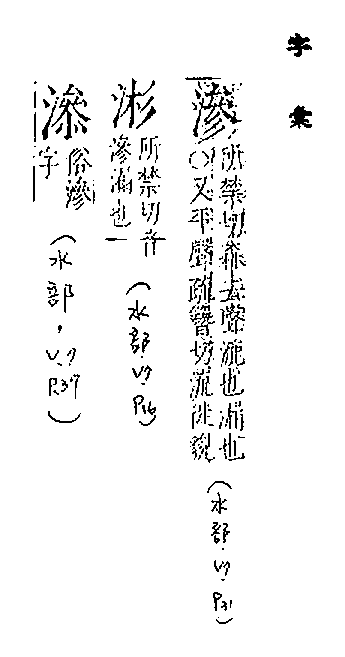 字彙
滲
所禁切森去聲漉也漏也
○又平聲疏簪切流徙貌
(水部.V7.P31)
渗
所禁切音
滲漏也
(水部.V7.P16)
俗滲
字
(水部,V.7 P.37)